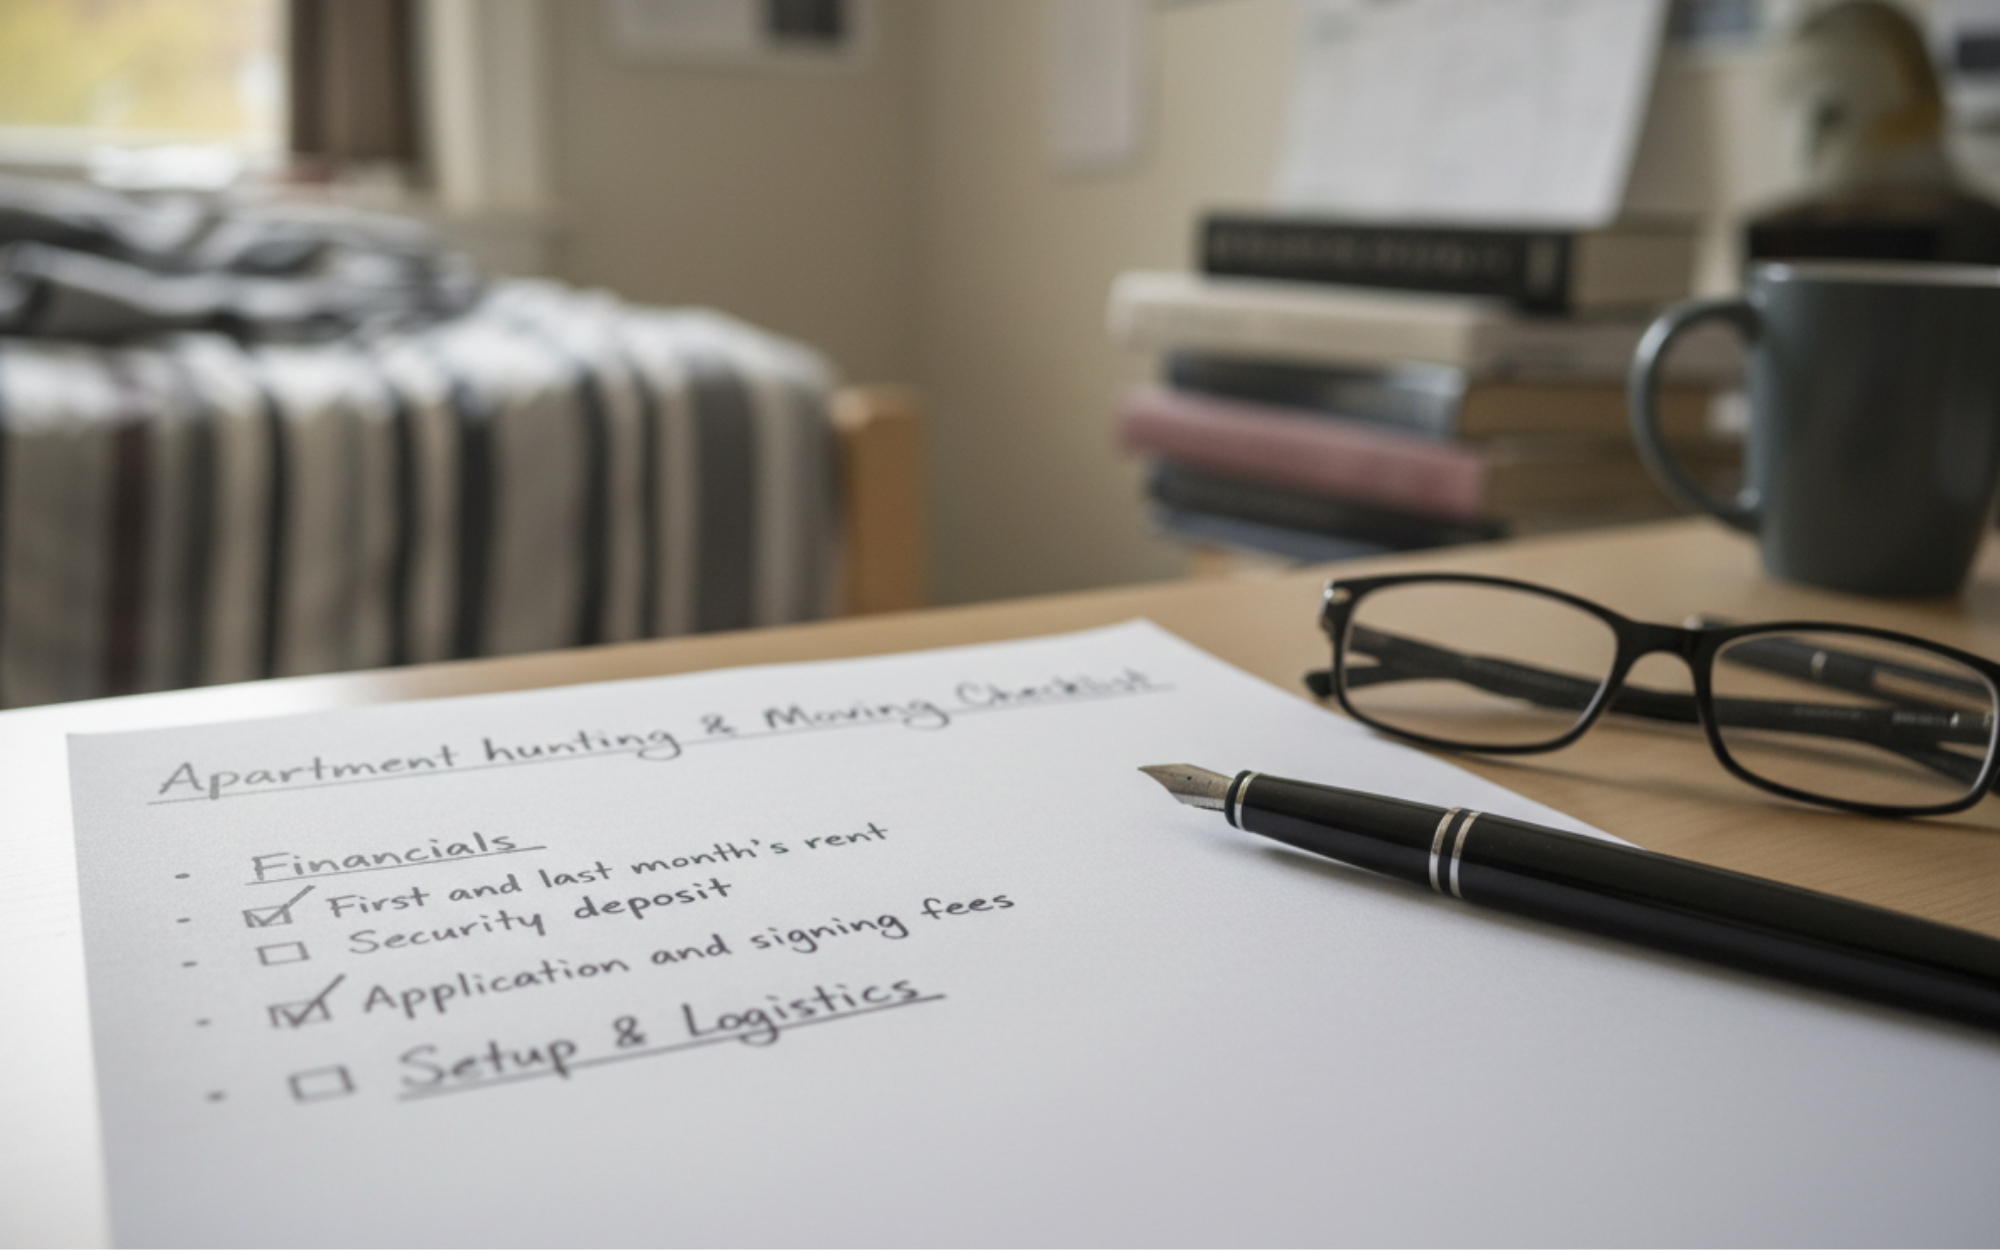 Apartment hunting & Moving Checklist
- Financials
- ☑ First and last month's rent
- ☐ Security deposit
- ☑ Application and signing fees
- ☐ Setup & Logistics